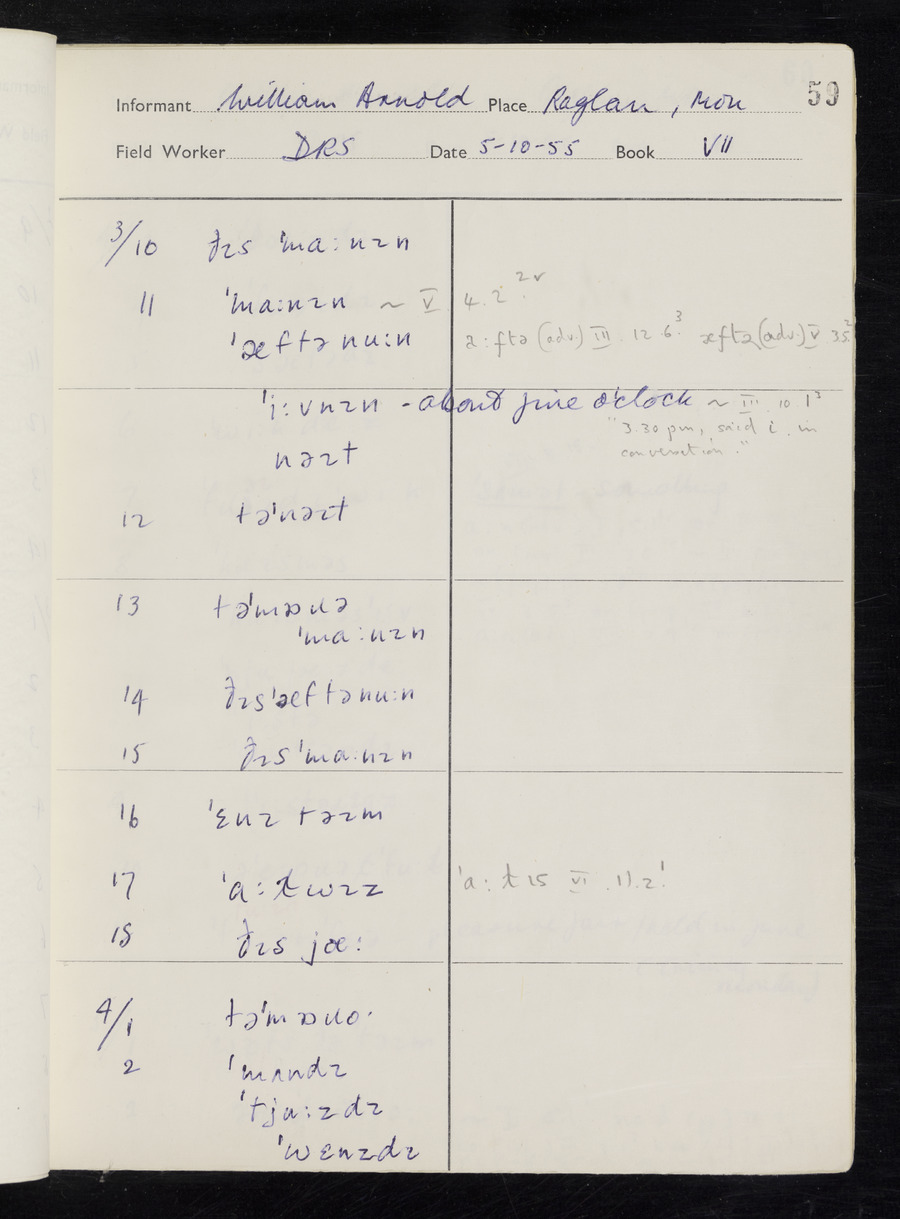 59
Informant William Arnold Place Raglan, Mon
Field Worker DRS Date 5-10-55 Book VII
3/10 ðɪs ˈmaːnɪn
11 ˈmaːnɪn ~ V 4.2
ˈæftənuːn (adv.) III.12.6³ æftə (adv.) V
ˈiːvnɪn - about five o'clock ~ III.10.1²
"3.30 pm, said i. in
nəɪt conversation."
12 təˈnəɪt
13 təˈmɒɹə
ˈmaːnɪn
14 ðɪsˈæftənuːn
15 ðɪsˈmaːnɪn
16 ˈɛnɪ təɪm
17 ˈaːɫwɪz
18 ðɪs jœː
4/1 təˈmɒɹoˑ
2 ˈmʌndɪ
ˈtjuːzdɪ
ˈwɛnzdɪ